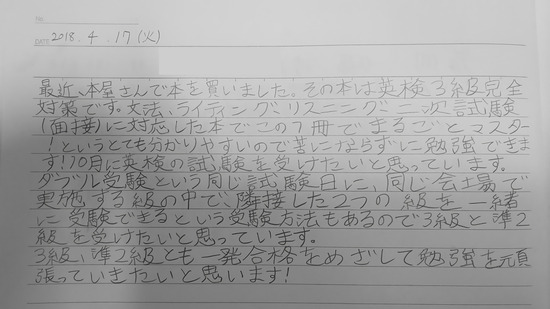 DATE 2018.4.17(火)
最近、本屋さんで本を買いました。その本は英検3級完全
対策です。文法、ライティング、リスニング、二次試験
(面接)に対応した本でこの1冊でまるごとマスター
!というとても分かりやすいので苦にならずに勉強できま
す!10月に英検の試験を受けたいと思っています。
ダブル受験という同じ試験日に、同じ会場で
実施する級の中で、隣接した2つの級を一緒
に受験できるという受験方法もあるので3級と準2
級を受けたいと思っています。
3級、準2級とも一発合格をめざして勉強を頑
張っていきたいと思います!